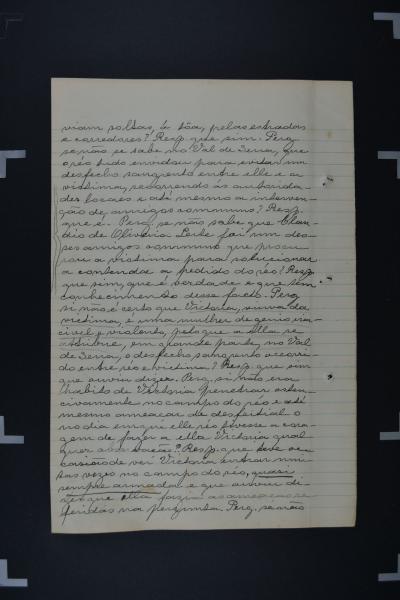 viam soltas, á tôa, pelas estradas
e corredores? Resp. que sim. Perg.
se não se sabe no Val de Serra, que
o réo tudo envidou para evitar um
desfecho sangrento entre elle e a
victima, recorrendo ás autorida-
des locaes e até mesmo a interven-
ção de amigos commums? Resp.
que é. Perg. se não sabe que Clau-
dio de Oliveira Leite foi um des-
ses amigos commums que procu-
rou a victima para solucionar
a contenda a pedido do réo? Resp.
que sim, que é verdade e que tem
conhecimento desse facto. Perg.
si não é certo que Victoria, viuva da
victima, é uma mulher de genio iras-
civel e violento, pelo que a ella se
attribue, em grande parte, no Val
de Serra, o desfecho sangrento occorri-
do entre réo e victima? Resp. que sim
que ouviu dizer. Perg. si não era
habito de Victoria penetrar osten-
sivamente no campo do réo e até
mesmo ameaçar de desfeital o
no dia em que elle réo tivesse a cora-
gem de fazer a ella Victoria qual
quer observação? Resp. que teve oc-
casião de ver Victoria entrar mui-
tas vezes no campo do réo, quasi
sempre armada e que ouviu di-
zer que ella fazia as ameaças re-
feridas na pergunta. Perg. se não